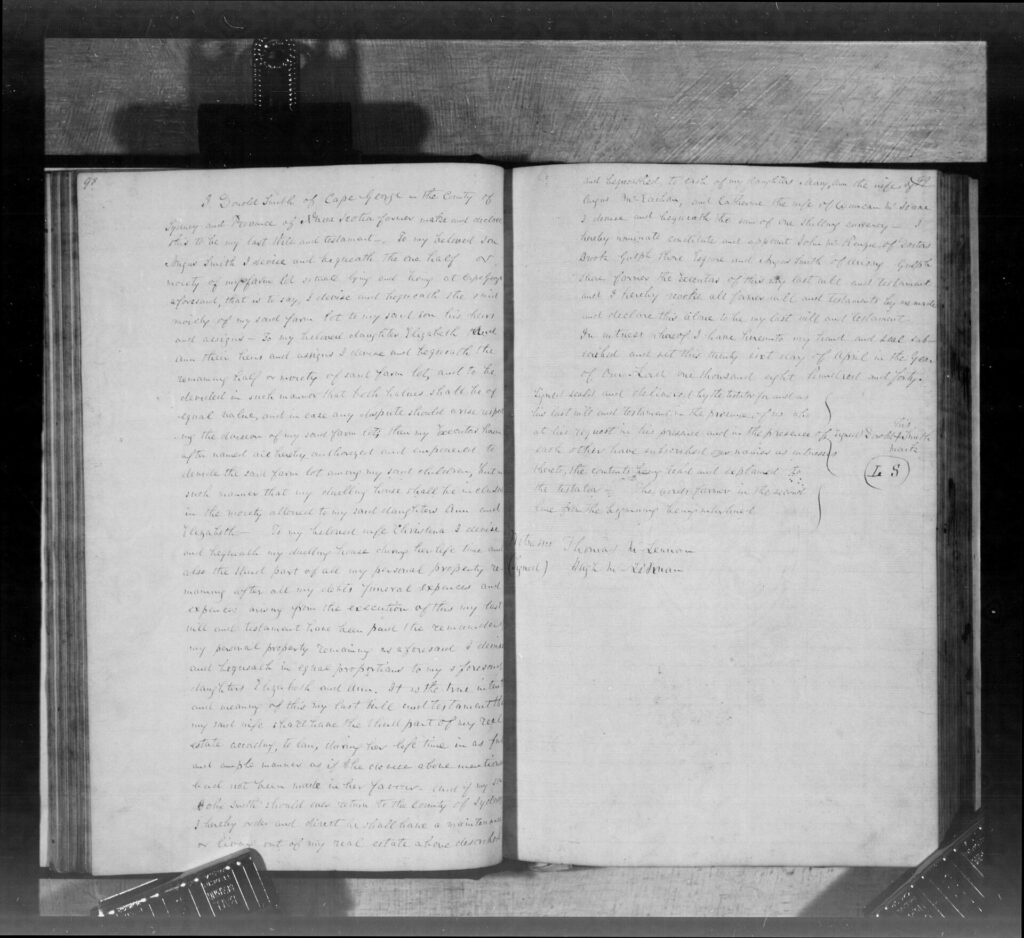 98
I Donald Smith of Cape George in the County of
Sydney and Province of Nova Scotia farmer make and declare
this to be my last Will and testament — To my beloved Son
Angus Smith I devise and bequeath the one half or
moiety of my farm lot situate lying and being at Cape George
aforesaid, that is to say, I devise and bequeath the said
moiety of my said farm lot to my said son his heirs
and assigns — To my beloved daughters Elizabeth and
Ann their heirs and assigns I devise and bequeath the
remaining half or moiety of said farm lot, and to be
devided in such manner that both halves shall be of
equal value, and in case any dispute should arise respect
ing the division of my said farm lot, then my Executors herein
after named are hereby authorized and empowered to
devide the said farm lot among my said children, but in
such manner that my dwelling house shall be included
in the moiety allowed to my said daughters Ann and
Elizabeth — To my beloved wife Christena I devise
and bequeath my dwelling house during her life time and
also the third part of all my personal property re
maining after all my debts funeral expences and
expences arising from the execution of this my last
will and testament have been paid the remainder
my personal property remaining as aforesaid I devise
and bequeath in equal proportions to my aforesaid
daughters Elizabeth and Ann. It is the true intent
and meaning of this my last Will and testament that
my said wife shall have the third part of my real
estate according to law, during her life time in as full
and ample manner as if the devise above mentioned
had not been made in her favour. And if my son
John Smith should ever return to the County of Sydney
I hereby order and direct he shall have a maintenance
or living out of my real estate above described
99
and bequeathed, to each of my daughters Mary Ann the wife of
Angus McEachan, and Catherine the wife of Duncan McIsaac
I devise and bequeath the sum of one Shilling currency — I
hereby nominate constitute and appoint John McKenzie, of Doctors
Brook Gulph Shore Esquire and Angus Smith of Gulph
Shore farmer the Executors of this my last will and testament
and I hereby revoke all former will and testaments by me made
and declare this alone to be my last will and testament.
In witness whereof I have hereunto my hand and seal sub-
scribed and set this twenty sixt day of April in the Year
of Our Lord one thousand eight hundred and forty.
Signed sealed and delivered by the testator for and as
his last will and testament in the presence of us who
at his request in his presence and in the presence of
each other have subscribed our names as witnesses
thereto, the contents being read and explained to
the testator — The words farmer in the second
line from the beginning being interlined
his
(signed) Donald X Smith
mark
L S
Witnesses Thomas McLennan
(signed) Hugh McLennan